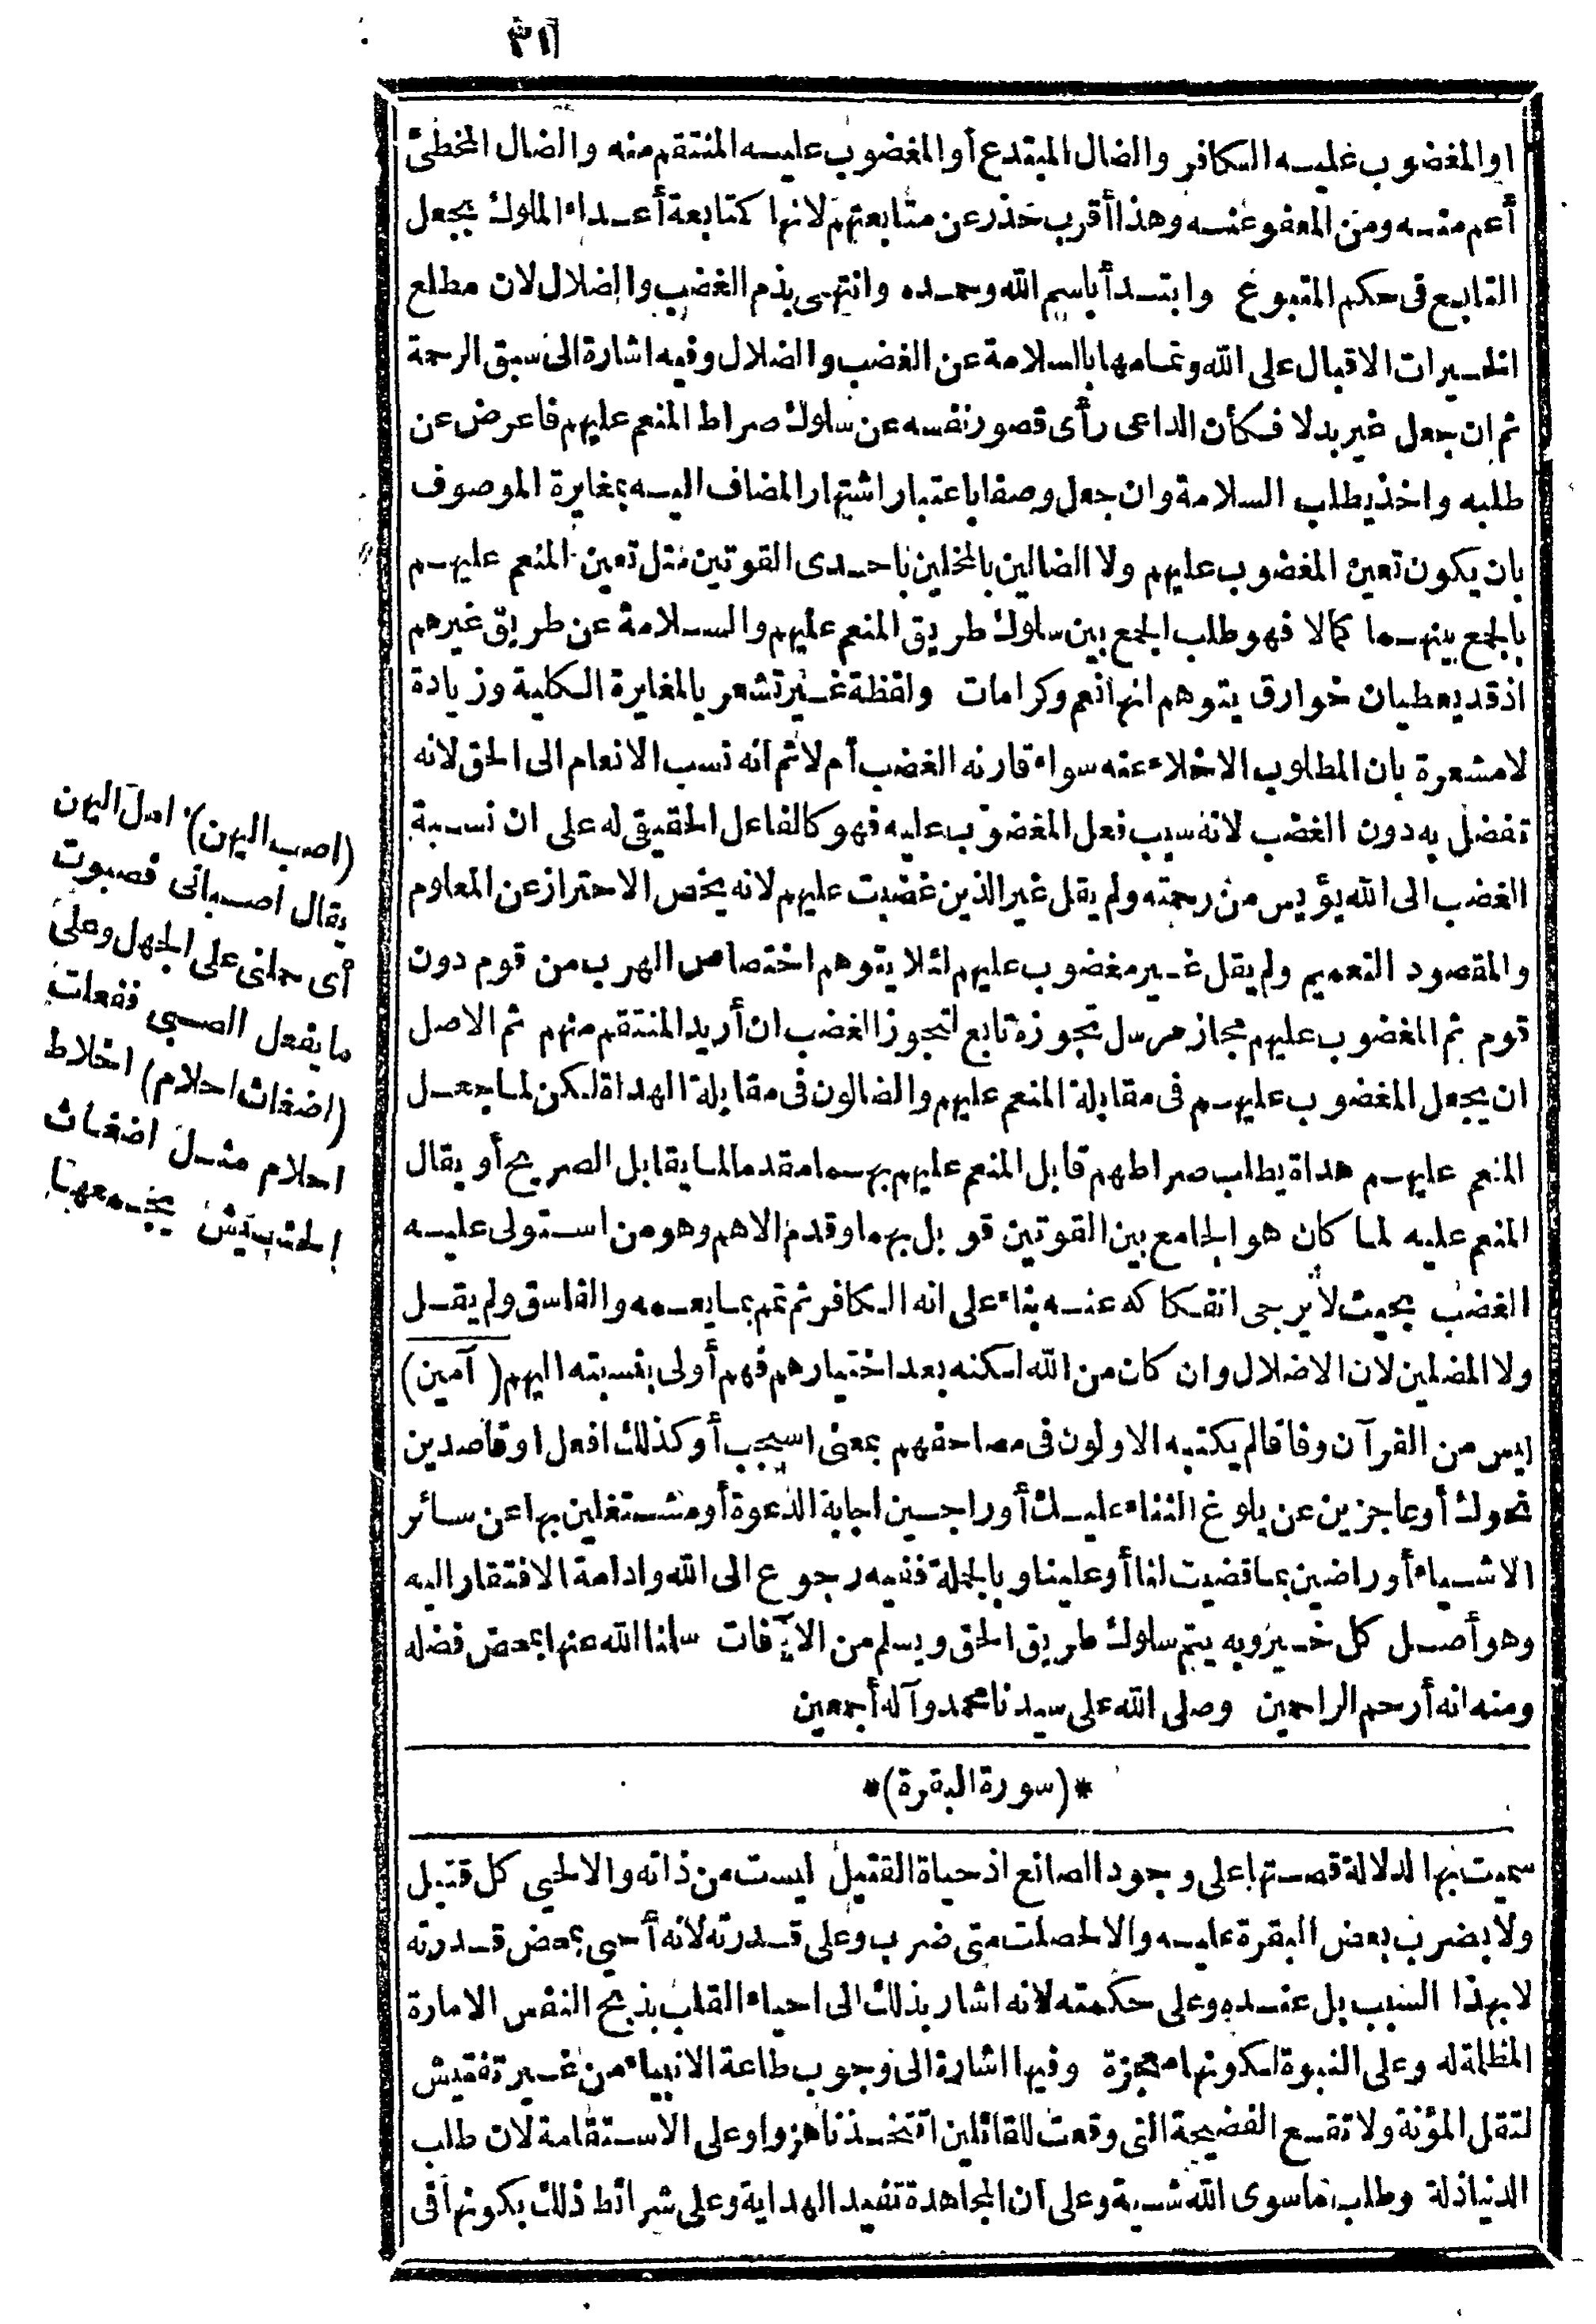 ٣١
او المغضوب عليه الكافر والضال المبتدع أو المغضوب عليه المنتقم منه والضال المخطئ
أعم منه ومن المعفو عنه وهذا أقرب حذر عن متابعتهم لانها كمتابعة أعداء الملوك يجعل
التابع في حكم المتبوع وابتدأ باسم الله وحمده وانتهى بذم الغضب والضلال لان مطلع
الخيرات الاقبال على الله وتمامها بالسلامة عن الغضب والضلال وفيه اشارة الى سبق الرحمة
ثم ان جعل غير بدلا فكأن الداعى رأى قصور نفسه عن سلوك صراط المنعم عليهم فاعرض عن
طلبه واخذ يطلب السلامة وان جعل وصفا باعتبار اشتهار المضاف اليه بمغايرة الموصوف
بان يكون تعين المغضوب عليهم ولا الضالين بالمخلين باحدى القوتين مثل تعين المنعم عليهم
بالجمع بينهما كمالا فهو طلب الجمع بين سلوك طريق المنعم عليهم والسلامة عن طريق غيرهم
اذ قد يعطيان خوارق يتوهم انها نعم وكرامات ولفظة غير تشعر بالمغايرة الكلية وزيادة
لا مشعرة بان المطلوب الاخلاء عنه سواء قارنه الغضب أم لا ثم انه نسب الانعام الى الحق لانه
تفضل به دون الغضب لانه سبب فعل المغضوب عليه فهو كالفاعل الحقيقى له على ان نسبة
الغضب الى الله يؤيس من رحمته ولم يقل غير الذين غضبت عليهم لانه يخص الاحتراز عن المعلوم
والمقصود التعميم ولم يقل غير مغضوب عليهم لئلا يتوهم اختصاص الهرب من قوم دون
قوم ثم المغضوب عليهم مجاز مرسل تجوزه تابع لتجوز الغضب ان أريد المنتقم منهم ثم الاصل
ان يجعل المغضوب عليهم فى مقابلة المنعم عليهم والضالون فى مقابلة الهداة لكن لما جعل
المنعم عليهم هداة يطلب صراطهم قابل المنعم عليهم بهما مقدما لما يقابل الصريح أو يقال
المنعم عليه لما كان هو الجامع بين القوتين قوبل بهما وقدم الاهم وهو من استولى عليه
الغضب بحيث لا يرجى انفكاكه عنه بناء على انه الكافر ثم تمم بما يعمه والفاسق ولم يقل
ولا المضلين لان الاضلال وان كان من الله لكنه بعد اختيارهم فهم أولى بنسبته اليهم (آمين)
ليس من القرآن وفاقا لم يكتبه الاولون فى مصاحفهم بمعنى استجب أو كذلك افعل او قاصدين
نحوك أو عاجزين عن بلوغ الثناء عليك أو راجين اجابة الدعوة أو مشتغلين بها عن سائر
الاشياء أو راضين بما قضيت لنا أو علينا وبالجملة ففيه رجوع الى الله وادامة الافتقار اليه
وهو أصل كل خير وبه يتم سلوك طريق الحق ويسلم من الآفات سلمنا الله عنها بمحض فضله
ومنه انه أرحم الراحمين وصلى الله على سيدنا محمد وآله أجمعين
*(سورة البقرة)*
سميت بها لدلالة قصتها على وجود الصانع اذ حياة القتيل ليست من ذاته والا لحيى كل قتيل
ولا بضرب بعض البقرة عليه والا لحصلت متى ضرب وعلى قدرته لانه أحيى بمحض قدرته
لا بهذا السبب بل عنده وعلى حكمته لانه اشار بذلك الى احياء القلب بذبح النفس الامارة
المظلمة له وعلى النبوة لكونها معجزة وفيها اشارة الى وجوب طاعة الانبياء من غير تفتيش
لتقل المؤنة ولا تقع الفضيحة التى وقعت للقائلين اتتخذنا هزوا وعلى الاستقامة لان طلب
الدنيا ذلة وطلب ما سوى الله شية وعلى ان المجاهدة تفيد الهداية وعلى شرائط ذلك بكونها فى
(اصب اليهن) امل اليهن
يقال اصبانى فصبوت
أى حملنى على الجهل وعلى
ما يفعل الصبى ففعلت
(اضغاث احلام) اخلاط
احلام مثل اضغاث
الحشيش يجمعها